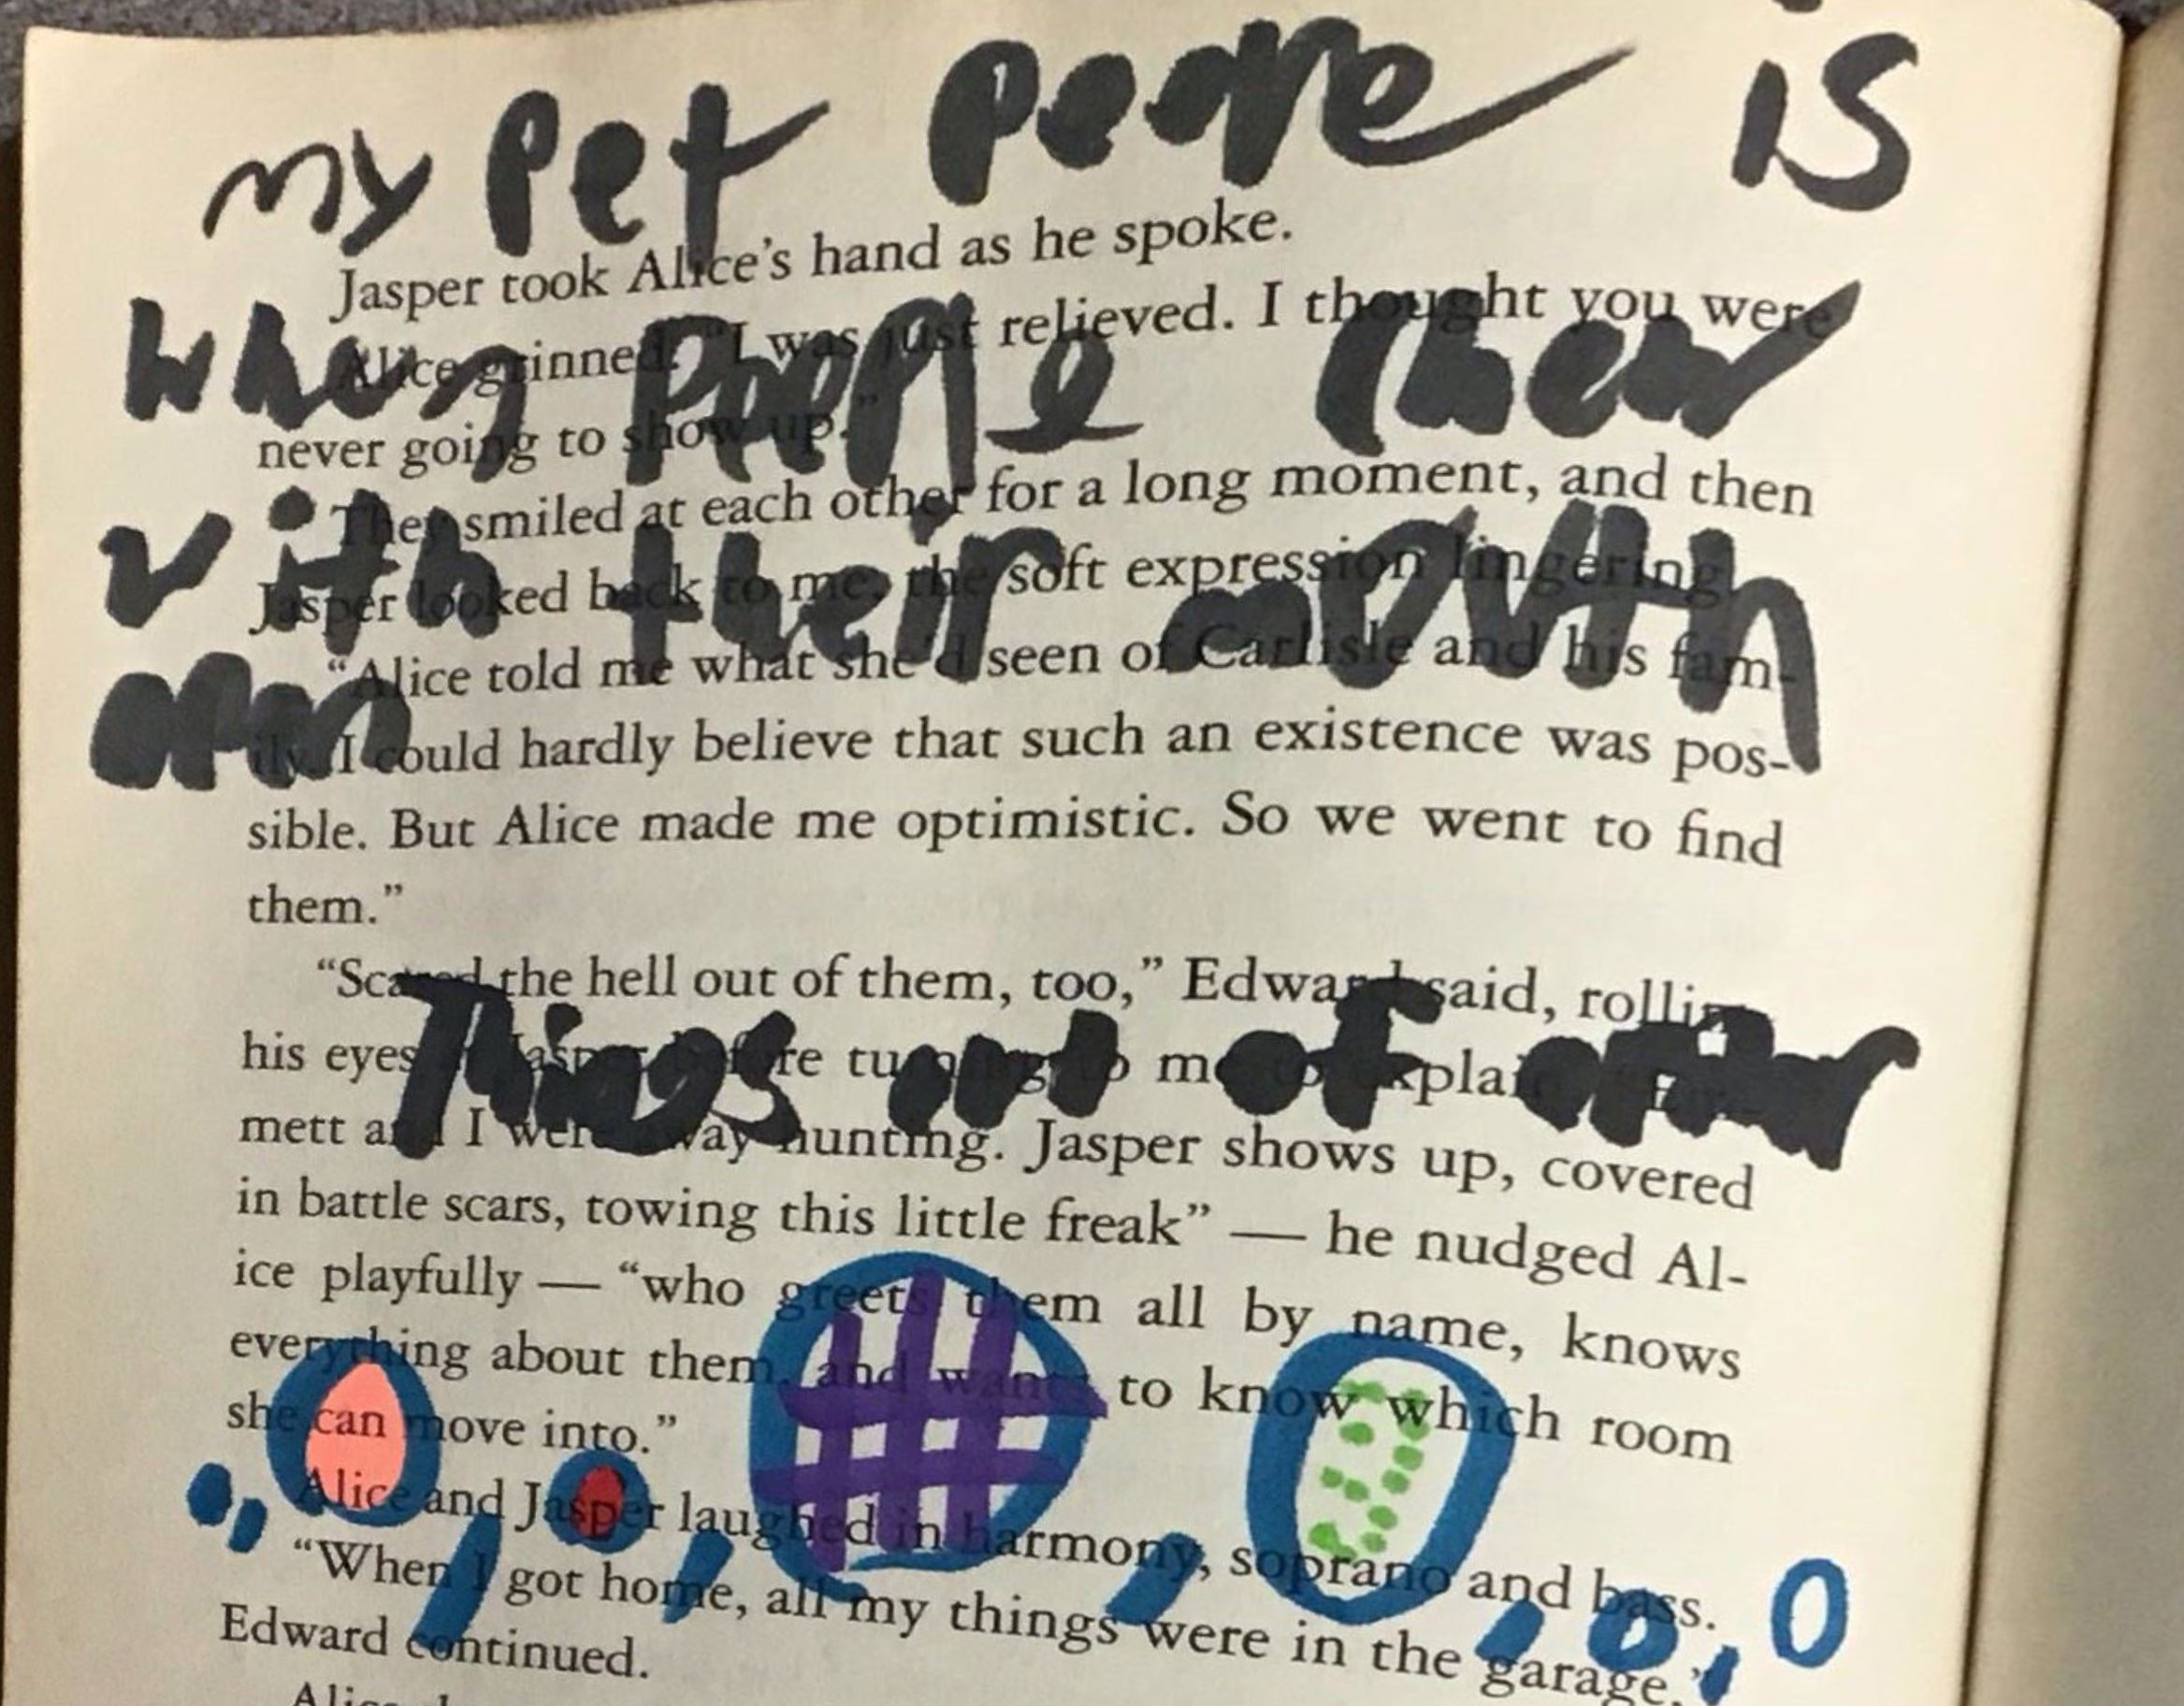 my Pet peave is
Jasper took Alice's hand as he spoke.
Alice grinned. "I was just relieved. I thought you were
when People Chew
never going to show up."
They smiled at each other for a long moment, and then
with their mouth
Jasper looked back to me, the soft expression lingering.
"Alice told me what she'd seen of Carlisle and his fam-
open
ily. I could hardly believe that such an existence was pos-
sible. But Alice made me optimistic. So we went to find
them."
"Scared the hell out of them, too," Edward said, rolling
Things out of order
his eyes at Jasper before turning to me to explain. "Em-
mett and I were away hunting. Jasper shows up, covered
in battle scars, towing this little freak" — he nudged Al-
ice playfully — "who greets them all by name, knows
everything about them, and wants to know which room
she can move into."
Alice and Jasper laughed in harmony, soprano and bass.
"When I got home, all my things were in the garage,"
Edward continued.